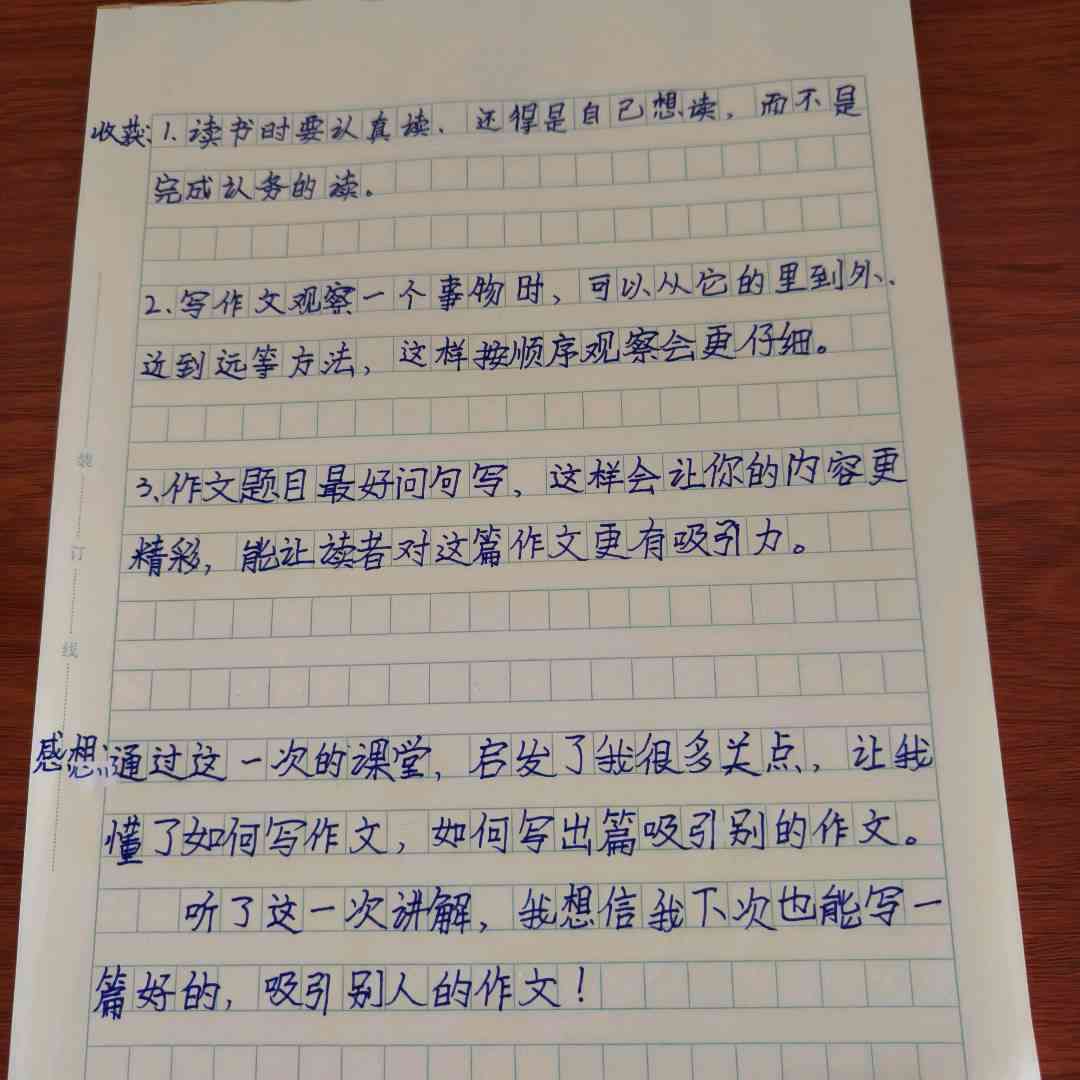 收获:1.读书时要认真读、还得是自己想读，而不是
完成认务的读。
2.写作文观察一个事物时，可以从它的里到外、
近到远等方法，这样按顺序观察会更仔细。
3.作文题目最好问句写，这样会让你的内容更
精彩，能让读者对这篇作文更有吸引力。
感想:通过这一次的课堂，启发了我很多关点，让我
懂了如何写作文，如何写出篇吸引别的作文。
听了这一次讲解，我想信我下次也能写一
篇好的，吸引别人的作文！
装
订
线